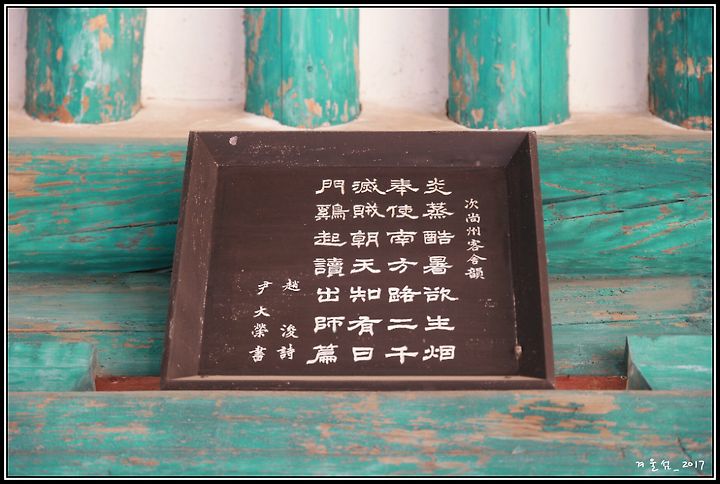 次尚州客舍韻
炎蒸酷暑欲生烟
奉使南方路二千
滅賊朝天知有日
門鷄起讀出師篇
趙 浚 詩
尹大榮書
겨울섬_2017